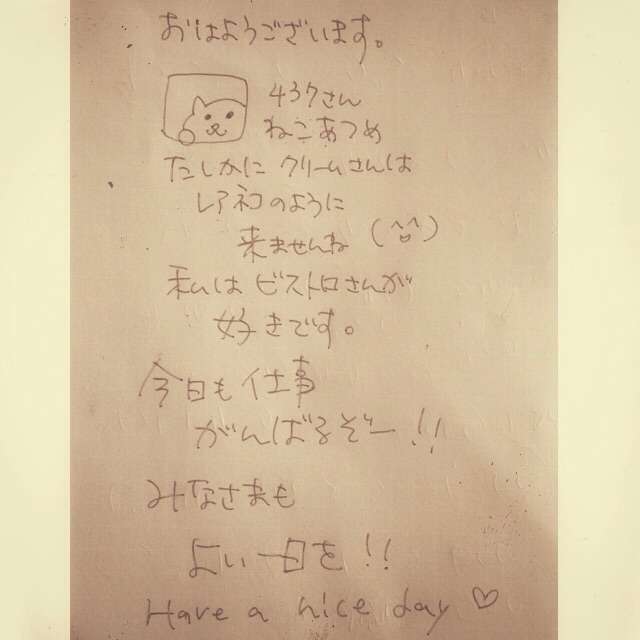 おはようございます。
437さん
ねこあつめ
たしかに クリームさんは
レアネコのように
来ませんね (^^)
私は ビストロさんが
好きです。
今日も 仕事
がんばるぞー!!
みなさまも
よい一日を!!
Have a nice day ♡